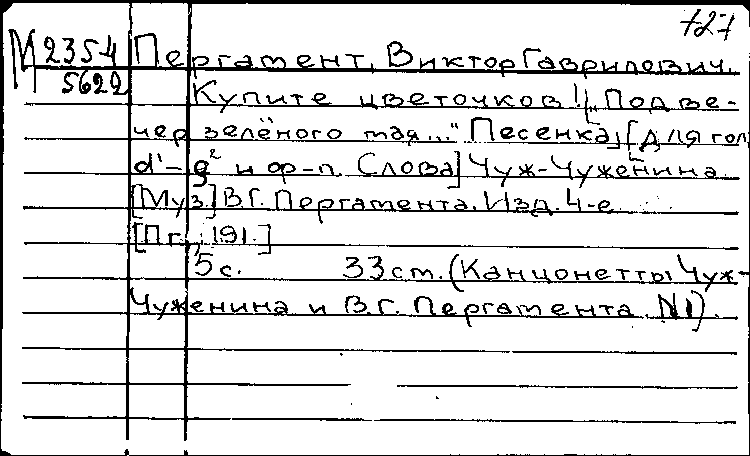 727
М 2354 Пергамент, Виктор Гаврилович.
5622
Купите цветочков! [„Под ве-
чер зелёного мая..." Песенка] [для гол.
d¹-g² и ф-п. Слова] Чуж-Чуженина
[Муз.] В.Г. Пергамента. Изд. 4-е
[Пг., 191.]
5 с. 33 см. (Канцонетты Чуж-
Чуженина и В.Г. Пергамента. N1).